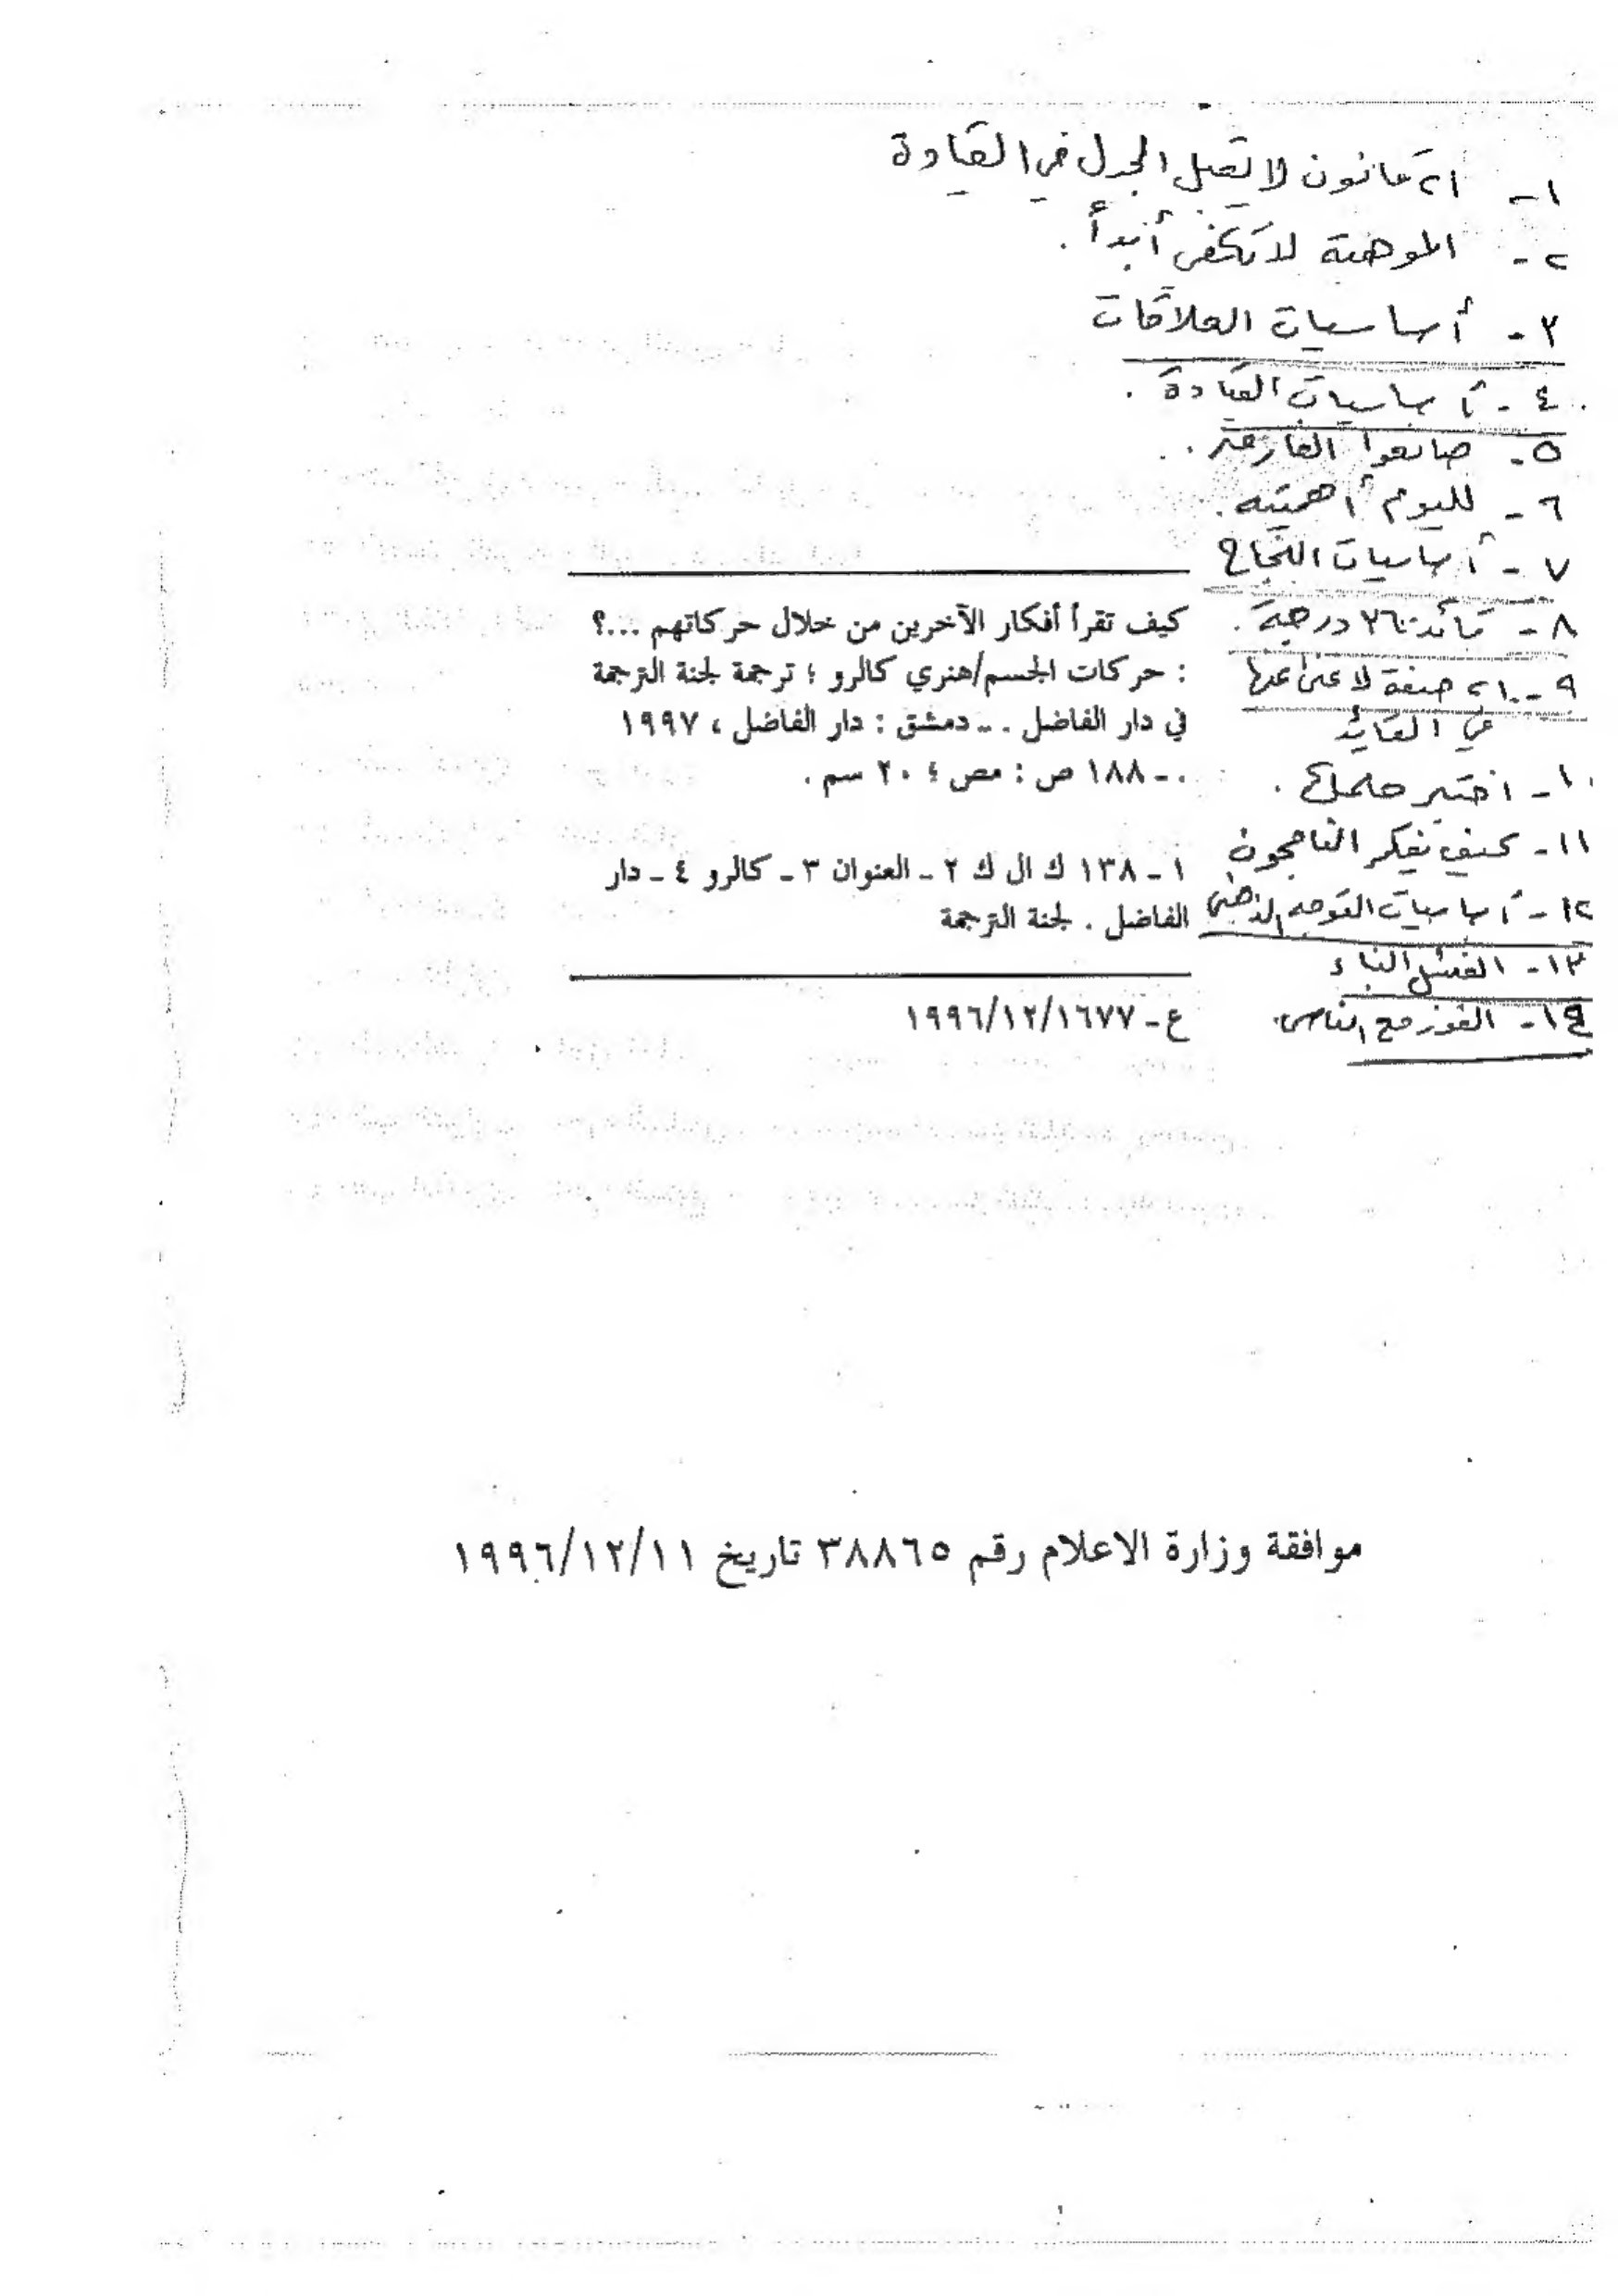 ١- ٢١ قانون لا يقبل الجدل في القيادة
٢- الموهبة لا تكفي أبداً.
٣- أساسيات العلاقات
٤- أساسيات القيادة.
٥- صانعوا الفارق
٦- لليوم أهميته.
٧- أساسيات النجاح
٨- قائد ٣٦٠ درجة.
٩- ٢١ صفة لا غنى عنها
في القائد
١٠- اختبر حلمك.
١١- كيف يفكر الناجحون
١٢- أساسيات التوجه الذهني
١٣- الفشل البناء
١٤- الفوز مع الناس.
كيف تقرأ أفكار الآخرين من خلال حركاتهم ...؟
: حركات الجسم/هنري كالرو ؛ ترجمة لجنة الترجمة
في دار الفاضل . ــ دمشق : دار الفاضل ، ١٩٩٧
. ــ ١٨٨ ص : مص ؛ ٢٠ سم .
١ ــ ١٣٨ ك ال ك ٢ ــ العنوان ٣ ــ كالرو ٤ ــ دار
الفاضل . لجنة الترجمة
ع ــ ١٩٩٦/١٢/١٦٧٧
موافقة وزارة الاعلام رقم ٣٨٨٦٥ تاريخ ١٩٩٦/١٢/١١